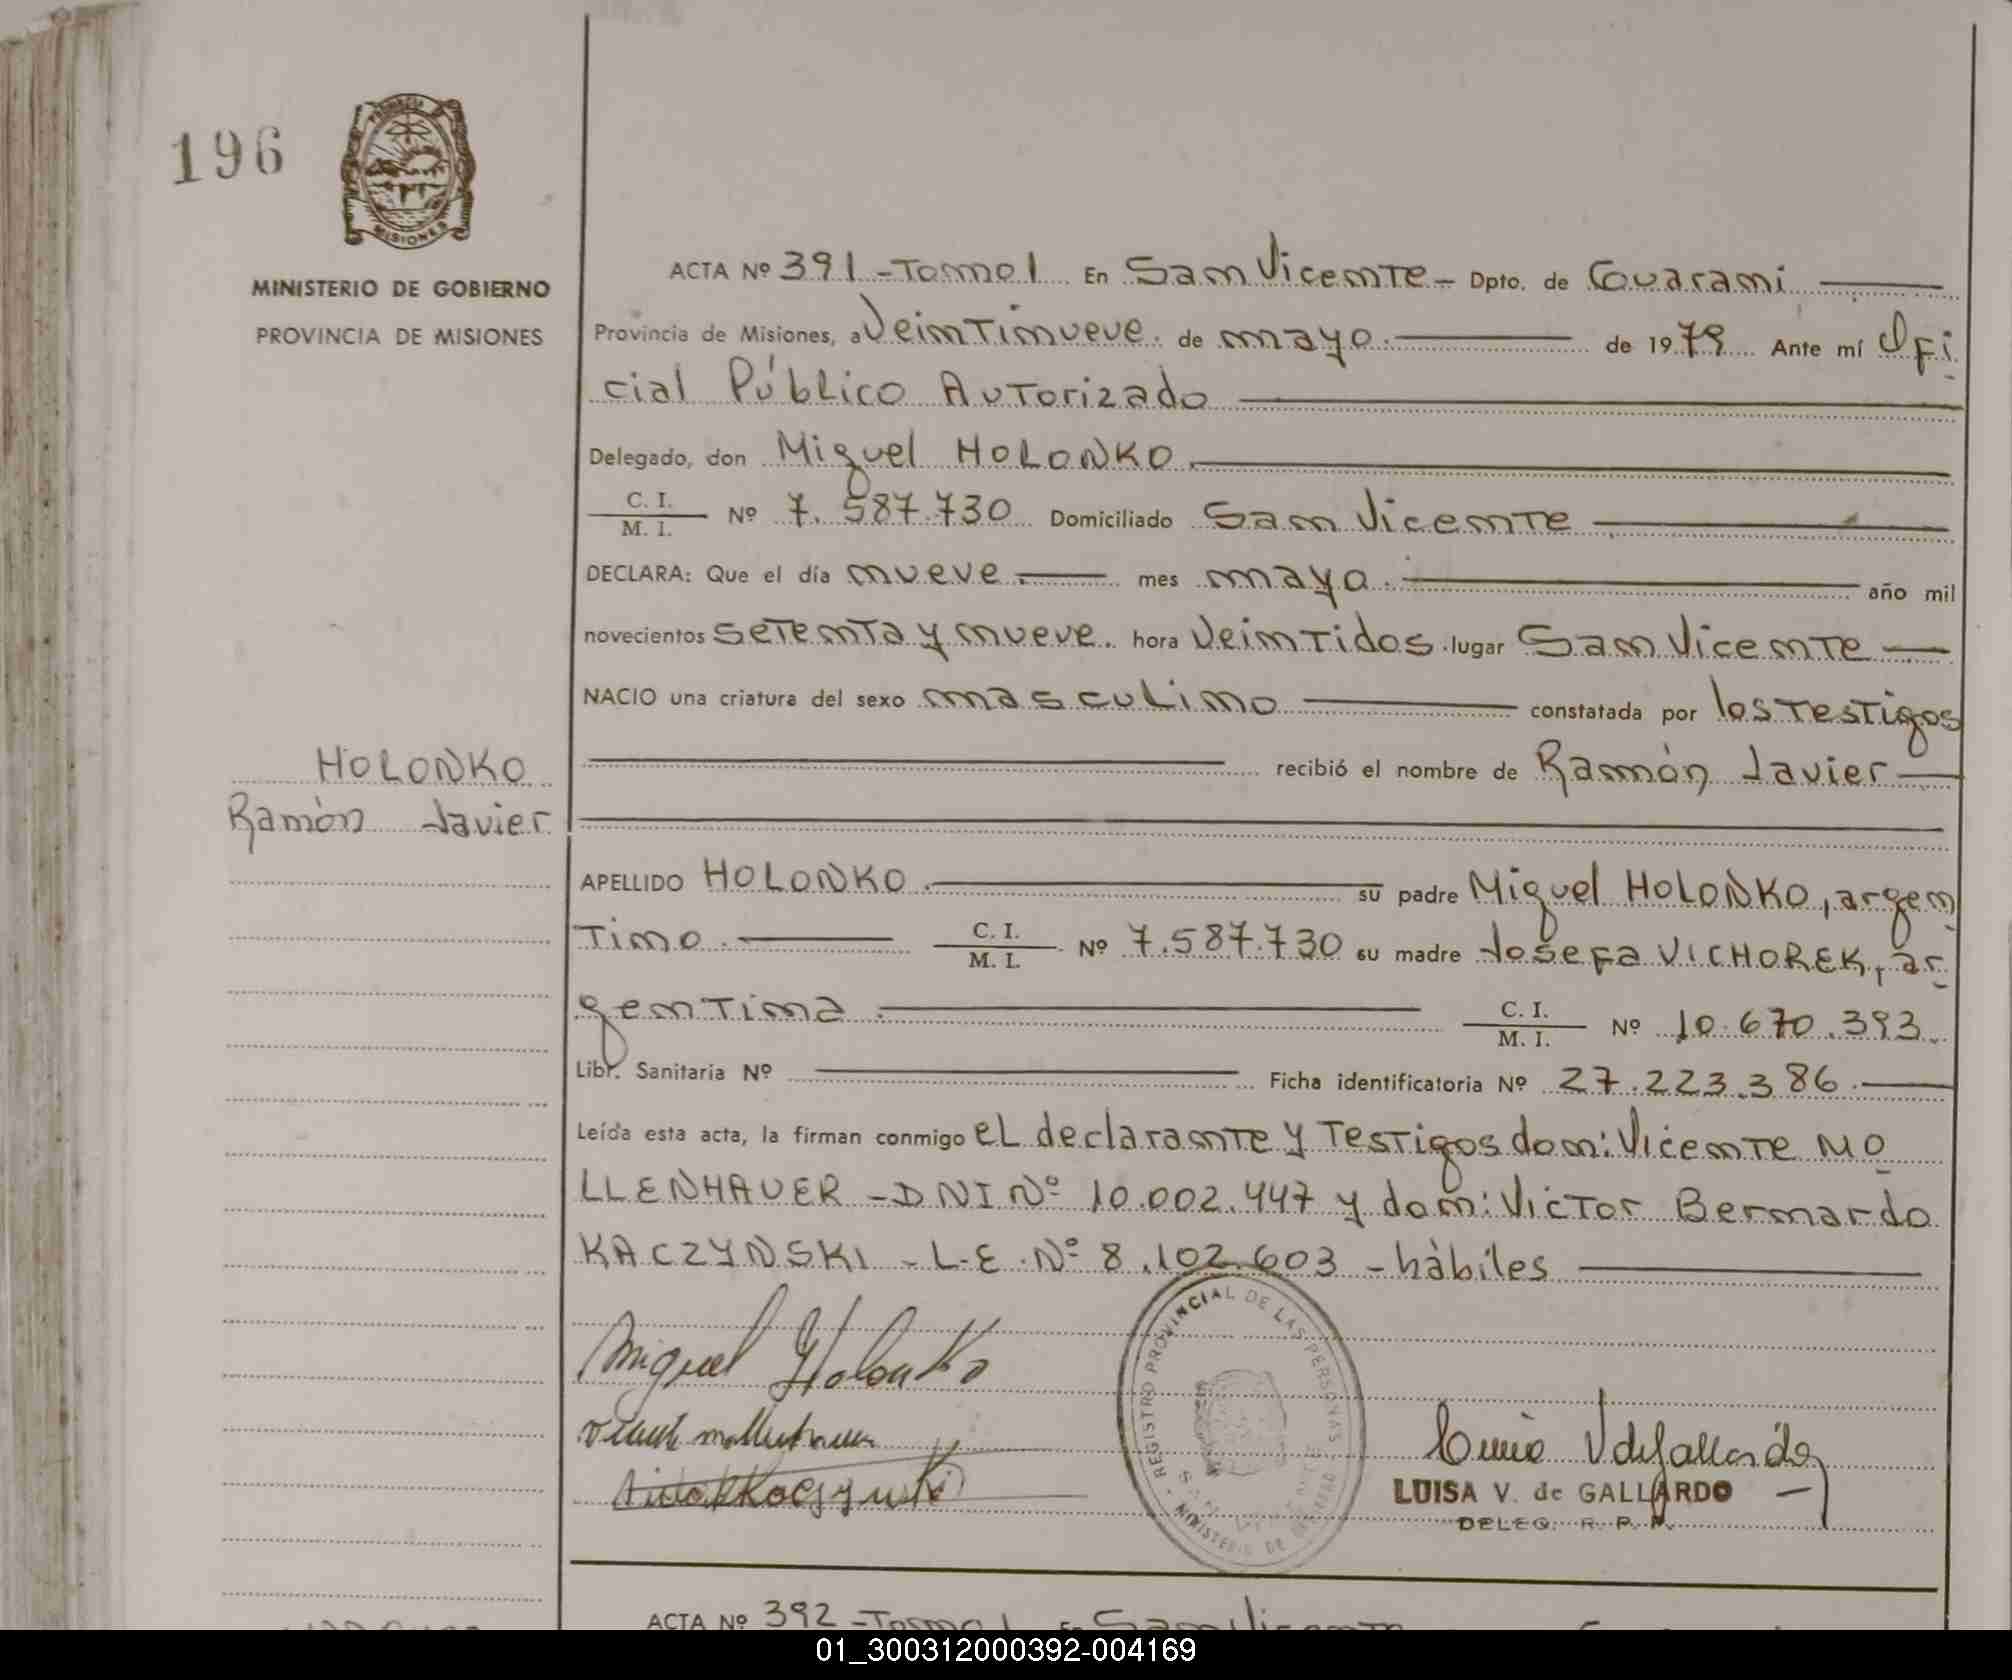 196
PROVINCIA DE
MISIONES
MINISTERIO DE GOBIERNO
PROVINCIA DE MISIONES
ACTA Nº 391 - Tomo 1 En San Vicente - Dpto. de Guaraní
Provincia de Misiones, a Veintinueve de mayo de 1979 Ante mí Ofi
cial Público Autorizado
Delegado, don Miguel HOLONKO
C. I.
M. I. Nº 7.587.730 Domiciliado San Vicente
DECLARA: Que el día nueve mes mayo año mil
novecientos setenta y nueve. hora Veintidos lugar San Vicente
NACIO una criatura del sexo masculino constatada por los testigos
recibió el nombre de Ramón Javier
HOLONKO
Ramón Javier
APELLIDO HOLONKO su padre Miguel HOLONKO, argen
tino C. I.
M. I. Nº 7.587.730 su madre Josefa VICHOREK, ar
gentina C. I.
M. I. Nº 10.670.393
Libr. Sanitaria Nº Ficha identificatoria Nº 27.223.386
Leída esta acta, la firman conmigo el declarante y testigos don: Vicente MO
LLENHAUER - DNI Nº 10.002.447 y don: Victor Bernardo
KACZYNSKI - L.E. Nº 8.102.603 - hábiles
Miguel Holonko
REGISTRO PROVINCIAL DE LAS PERSONAS
MINISTERIO DE
LUISA V. de GALLARDO
DELEG. R. P. P.
ACTA Nº 392 - Tomo 1 En San Vicente
01_300312000392-004169